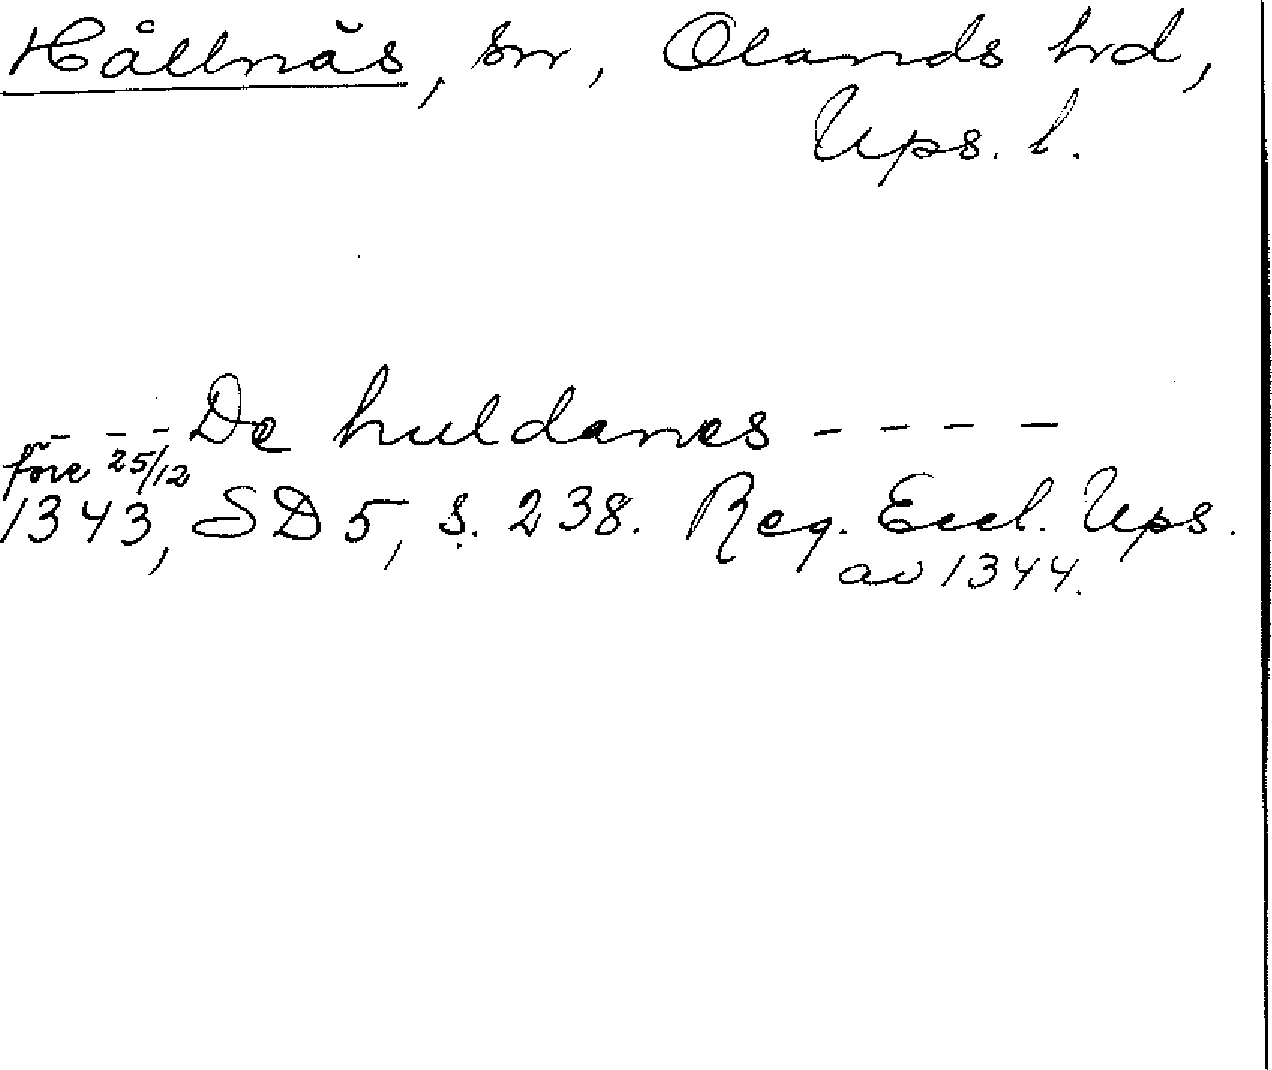 Hållnäs, sn, Olands hrd,
Ups. l.
- - - De huldanes - - - -
före 25/12
1343, SD 5, s. 238. Reg. Eccl. Ups.
av 1344.